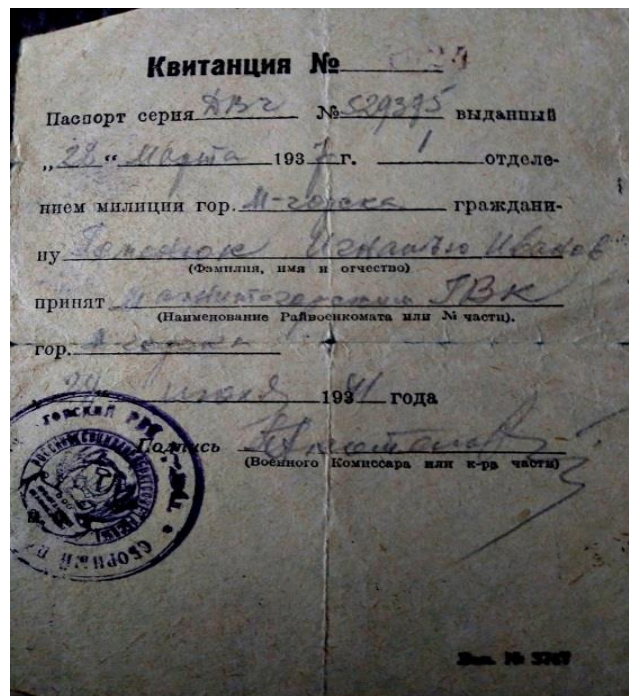 Квитанция №
Паспорт серия ДВЧ № 529375 выданный
„28“ Марта 1937 г. 1 отделе-
нием милиции гор. М-горска граждани-
ну Игнатью Иванов
(Фамилия, имя и отчество)
принят Магнитогорским ГВК
(Наименование Райвоенкомата или № части).
гор. М-горска
1941 года
Подпись
(Военного Комиссара или к-ра части)
СБОРНЫЙ
Зак. № 3767